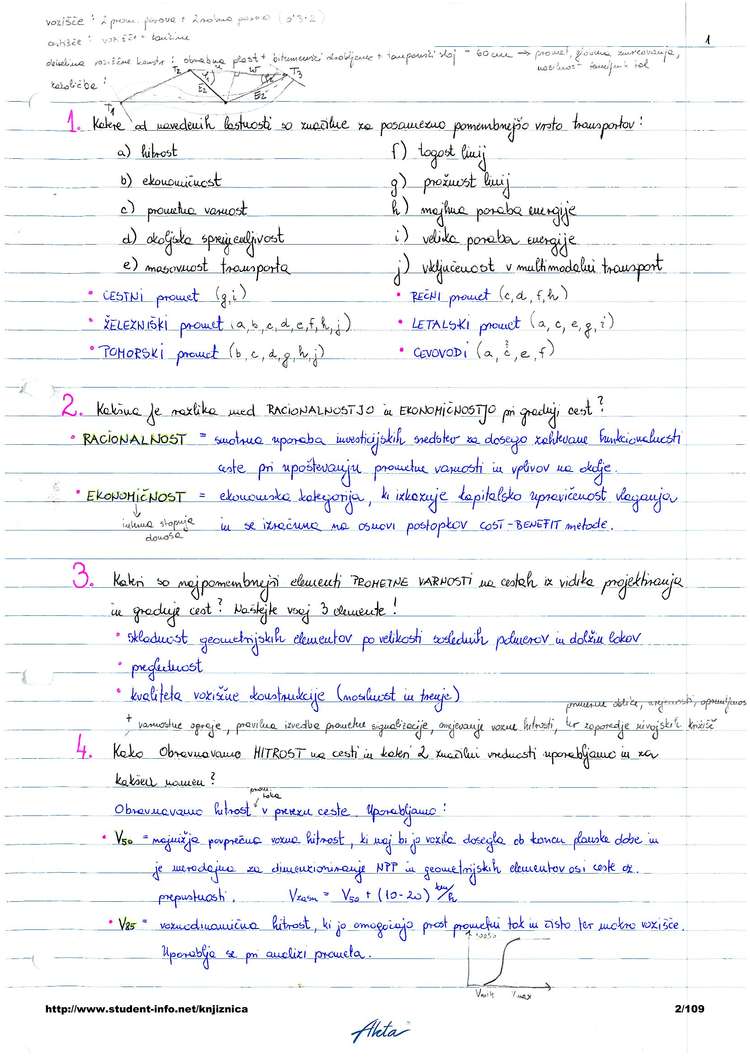 vozišče : 2 prom. pasova + 2 robna pasova
1
cestišče : vozišče + bankine
debelina voziščne konstr : obrabna plast + bitumenski drobljenec + tamponski sloj = 60 cm → promet, globina zmrzovanja,
nosilnost temeljnih tal
T2 W T3
E2 E2
T1
1. Katere od navedenih lastnosti so značilne za posamezno pomembnejšo vrsto transportov :
a) hitrost f) togost linij
b) ekonomičnost g) prožnost linij
c) prometna varnost h) majhna poraba energije
d) okoljska sprejemljivost i) velika poraba energije
e) masovnost transporta j) vključenost v multimodalni transport
• CESTNI promet (g,i) • REČNI promet (c,d,f,h)
• ŽELEZNIŠKI promet (a,b,c,d,e,f,h,j) • LETALSKI promet (a,c,e,g,i)
• POMORSKI promet (b,c,d,g,h,j) • CEVOVODI (a,c,e,f)
2. Kakšna je razlika med RACIONALNOSTJO in EKONOMIČNOSTJO pri gradnji cest?
• RACIONALNOST = smotrna uporaba investicijskih sredstev za dosego zahtevane funkcionalnosti
ceste pri upoštevanju prometne varnosti in vplivov na okolje.
• EKONOMIČNOST = ekonomska kategorija, ki izkazuje kapitalsko upravičenost vlaganja
interna stopnja
donosa
in se izračuna na osnovi postopkov COST-BENEFIT metode.
3. Kateri so najpomembnejši elementi PROMETNE VARNOSTI na cestah iz vidika projektiranja
in gradnje cest? Naštejte vsaj 3 elemente!
• skladnost geometrijskih elementov po velikosti sosednih polmerov in dolžin lokov
• preglednost
• kvaliteta voziščne konstrukcije (nosilnost in trenje)
primerne oblike, urejenosti, opremljenos
+ varnostne ograje, pravilna izvedba prometne signalizacije, omejevanje vozne hitrosti, ter zaporedje nivojskih križišč
4. Kako Obravnavamo HITROST na cesti in kateri 2 značilni vrednosti uporabljamo in za
kakšen namen?
prom.
toka
Obravnavamo hitrost v prerezu ceste. Uporabljamo :
• V50 = najnižja povprečna vozna hitrost, ki naj bi jo vozila dosegla ob koncu planske dobe in
je merodajna za dimenzioniranje NPP in geometrijskih elementov osi ceste oz.
prepustnosti. Vzasn = V50 + (10-20) km/h
• V85 = voznodinamična hitrost, ki jo omogočajo prost prometni tok in čisto ter mokro vozišče.
Uporablja se pri analizi prometa.
Vmin Vmax
http://www.student-info.net/knjiznica 2/109
Aleta